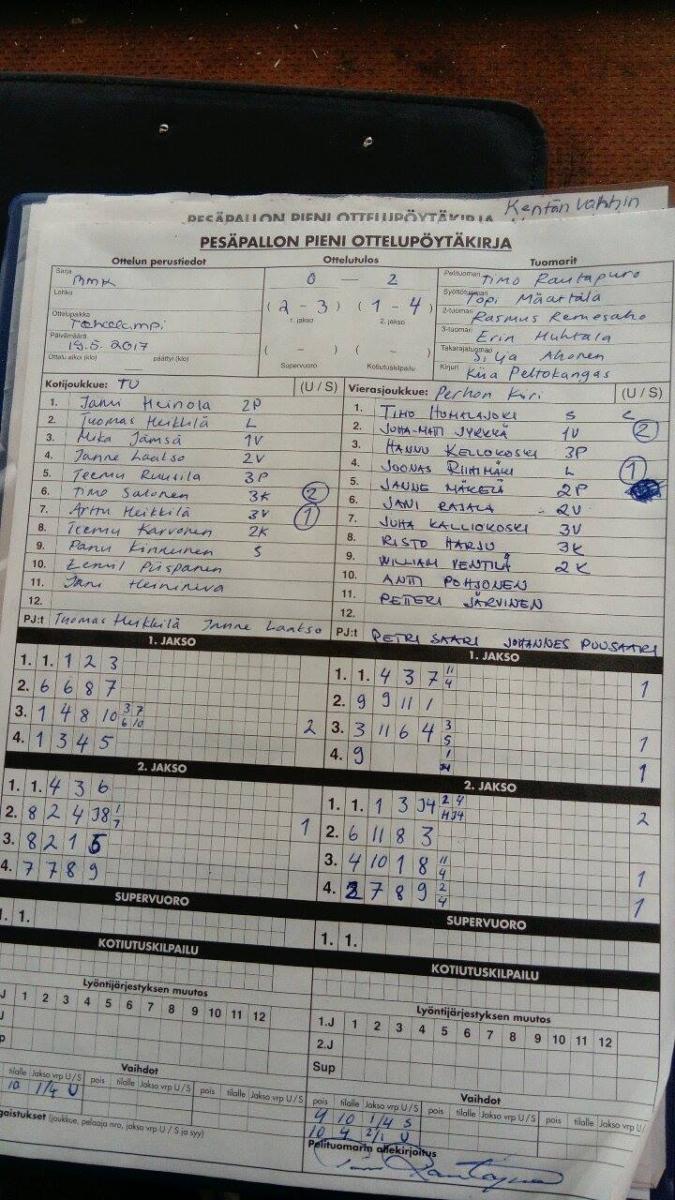 Kentän laki
PESÄPALLON PIENI OTTELUPÖYTÄKIRJA
PESÄPALLON PIENI OTTELUPÖYTÄKIRJA
Ottelun perustiedot Ottelutulos Tuomarit
Sarja MMK 0 — 2 Pelituomari Timo Rautapuro
Lohko Syöttötuomari Topi Määttälä
Ottelupaikka Toholampi (2 - 3) (1 - 4) 2-tuomari Rasmus Remesaho
1. jakso 2. jakso 3-tuomari Huhtala
Päivämäärä 19.5. 2017 ( – ) ( – ) Takarajatuomari Silja Ahonen
Ottelu alkoi (klo) päättyi (klo) Supervuoro Kotiutuskilpailu Kirjuri Kiia Peltokangas
Kotijoukkue: TU (U / S)
1. Janu Heinola 2P
2. Tuomas Heikkilä L
3. Mika Jämsä 1V
4. Janne Laakso 2V
5. Teemu Ruusila 3P
6. Timo Salonen 3K 2
7. Arttu Heikkilä 3V 1
8. Teemu Karvonen 2K
9. Panu Kinnunen S
10. Piispanen
11. Jani
12.
PJ:t Tuomas Heikkilä Janne Laakso
Vierasjoukkue: Perhon Kiri (U / S)
1. TIMO HUMALAJOKI S
2. JUHA-MATTI JYRKKÄ 1V 2
3. HANNU KELLOKOSKI 3P
4. JOONAS RIIHIMÄKI L 1
5. JANNE MÄKELÄ 2P
6. JANI RAJALA 2V
7. JUHA KALLIOKOSKI 3V
8. RISTO HARJU 3K
9. WILLIAM VENTILÄ 2K
10. ANTTI POHJONEN
11. PETTERI JÄRVINEN
12.
PJ:t PETRI SAARI JOHANNES PUUSAARI
1. JAKSO
1. 1. 1 2 3
2. 6 6 8 7
3. 1 4 8 10 3 7 6 10 2
4. 1 3 4 5
1. JAKSO
1. 1. 4 3 7 11 4 1
2. 9 9 11 1
3. 3 11 6 4 3 5 1
4. 9 1 1
2. JAKSO
1. 1. 4 3 6
2. 8 2 4 J8 1 7 1
3. 8 2 1 5
4. 7 7 8 9
2. JAKSO
1. 1. 1 3 J4 2 4 2
2. 6 11 8 3
3. 4 10 1 8 11 4 1
4. 2 7 8 9 2 4 1
SUPERVUORO
1. 1.
SUPERVUORO
1. 1.
KOTIUTUSKILPAILU
KOTIUTUSKILPAILU
Lyöntijärjestyksen muutos
J 1 2 3 4 5 6 7 8 9 10 11 12
J
p
Lyöntijärjestyksen muutos
1.J 1 2 3 4 5 6 7 8 9 10 11 12
2.J
Sup
Vaihdot
tilalle Jakso vrp U / S pois tilalle Jakso vrp U / S pois tilalle Jakso vrp U / S
10 1/4 U
gaistukset (joukkue, pelaaja nro, jakso vrp U / S ja syy)
Vaihdot
pois tilalle Jakso vrp U / S pois tilalle Jakso vrp U / S pois tilalle Jakso vrp U/
9 10 1/4 S
10 9 2/1 U
Pelituomarin allekirjoitus